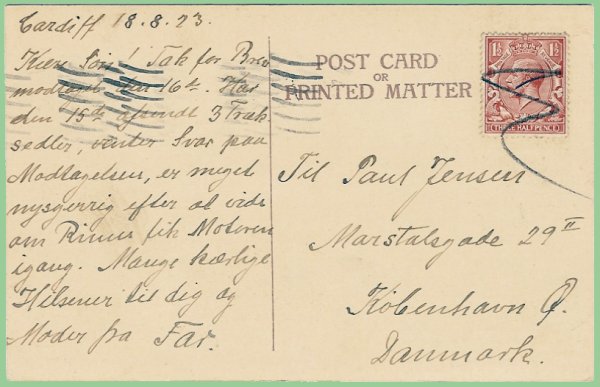 Cardiff 18.8.23.
Kære Søn! Tak for Brev
modtaget den 16de. Har
den 15de afsendt 3 Træk
sedler, venter Svar paa
Modtagelsen, er meget
nysgerrig efter at vide
om Rinus fik Motoren
igang. Mange kærlige
Hilsener til dig og
Moder fra Far.
POST CARD
OR
PRINTED MATTER
1½ 1½
THREE HALF PENCE
Til Paul Jensen
Marstalsgade 29 II
København Ø.
Danmark.